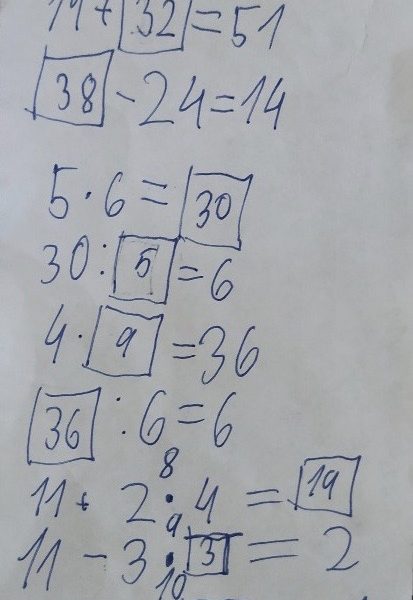 19+ 32 =51
38 -24=14
5·6= 30
30: 5 =6
4· 9 =36
36 :6=6
8
11+ 2·4 = 19
9
11 - 3· 3 = 2
10